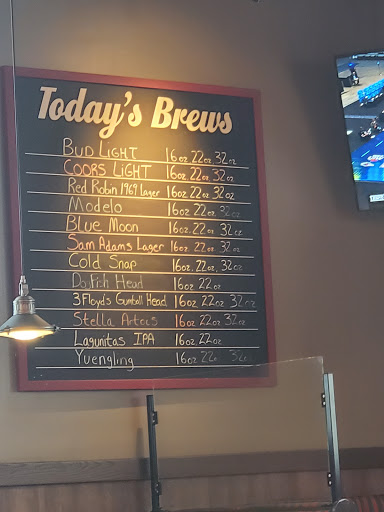 Today's Brews
Bud Light 16oz 22oz 32oz
Coors Light 16oz 22oz 32oz
Red Robin 1969 Lager 16oz 22oz 32oz
Modelo 16oz 22oz 32oz
Blue Moon 16oz 22oz 32oz
Sam Adams Lager 16oz 22oz 32oz
Cold Snap 16oz. 22oz. 32oz
Dogfish Head 16oz 22oz
3 Floyd's Gumball Head 16oz 22oz 32oz
Stella Artois 16oz 22oz 32oz
Lagunitas IPA 16oz. 22oz
Yuengling 16oz 22oz 32oz